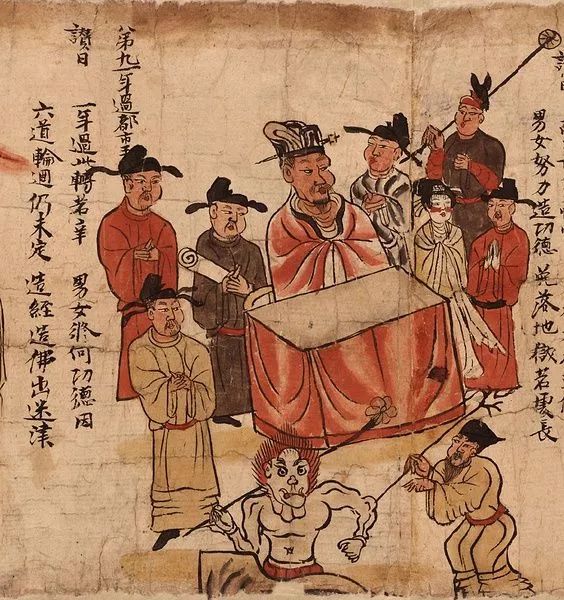 男女努力造功德 免落地獄苦處長
第九一年過都市王
讚曰 一年過此轉苦辛 男女修何功德因
六道輪迴仍未定 造經造佛出迷津